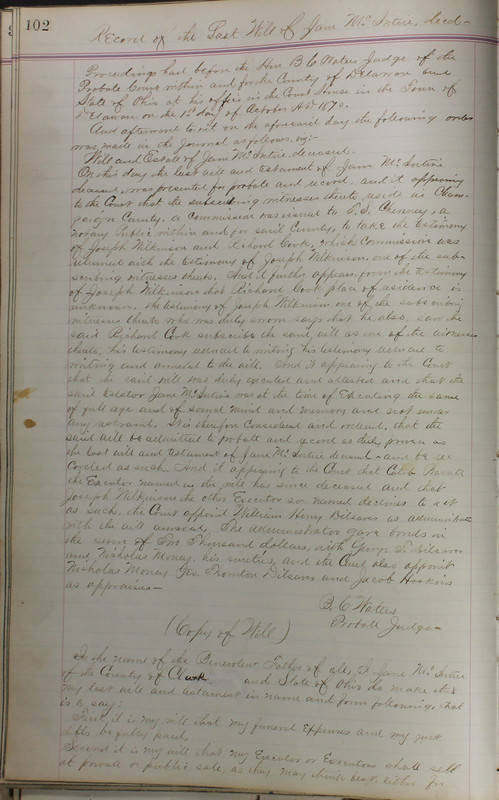 102
Record of the Last Will of Jane McIntire, decd-
Procedings had before the Hon. B C Waters Judge of the
Probate Court within and for the County of Delaware and
State of Ohio at his office in the Court House in the Town of
Delaware on the 12 day of October AD 1870.
And afterward to wit on the aforesaid day the following order
was made in the Journal as follows. viz:-
Will and Estate of Jane McIntire deceased-
On this day the last will and testament of Jane McIntire
deceased, was presented for probate and record, and it appearing
to the Court that the subscribing witnesses thereto reside in Cham-
paign County, a Commission was issued to Cheney, a
Notary Public within and for said County, to take the testimony
of Joseph Wilkinson and Richard Cook, which Commission was
returned with the testimony of Joseph Wilkinson, one of the sub-
scribing witnesses thereto. And it further appear, from the testimony
of Joseph Wilkinson that Richard Cook place of residence is
unknown. The testimony of Joseph Wilkinson one of the subscribing
witnesses thereto who was duly sworn says that he also, saw the
said Richard Cook subscribe the said will as one of the witnesses
thereto, his testimony reduced to writing his testimony reduced to
writing and annexed to the will. And it appearing to the Court
that the said will was duly executed and attested and that the
said testator Jane McIntire was at the time of Executing the same
of full age and of sound mind and memory and not under
any restraint. It is therefore Considered and ordered, that the
said will be admitted to probate and record as duly proven as
the last will and testament of Jane McIntire deceased and be re-
corded as such. And it appearing to the Court that Caleb
the Executor named in the will has since deceased and that
Joseph Wilkinson the other Executor so named declines to act
as such, the Court appoint William Henry Bilsans as administrator
with the will annexed, The administrator gave bonds in
the sum of Two Thousand dollars, with George
and Nicholas Money, his sureties, and the Court also appoint
Nicholas Money Geo. Thornton Bilsans and Jacob Hoskins
as appraisers-
B. C Waters
Probate Judge-
(Copy of Will)
In the name of the Benevolent Father of all, I Jane McIntire
of the County of Clark and State of Ohio do make this
my last will and testament in name and form following, that
is to say:
First, it is my will that my funeral Expenses and my just
debts be fully paid,
Second it is my will that my Executor or Executors shall sell
at private or public sale, as they may think best, either for